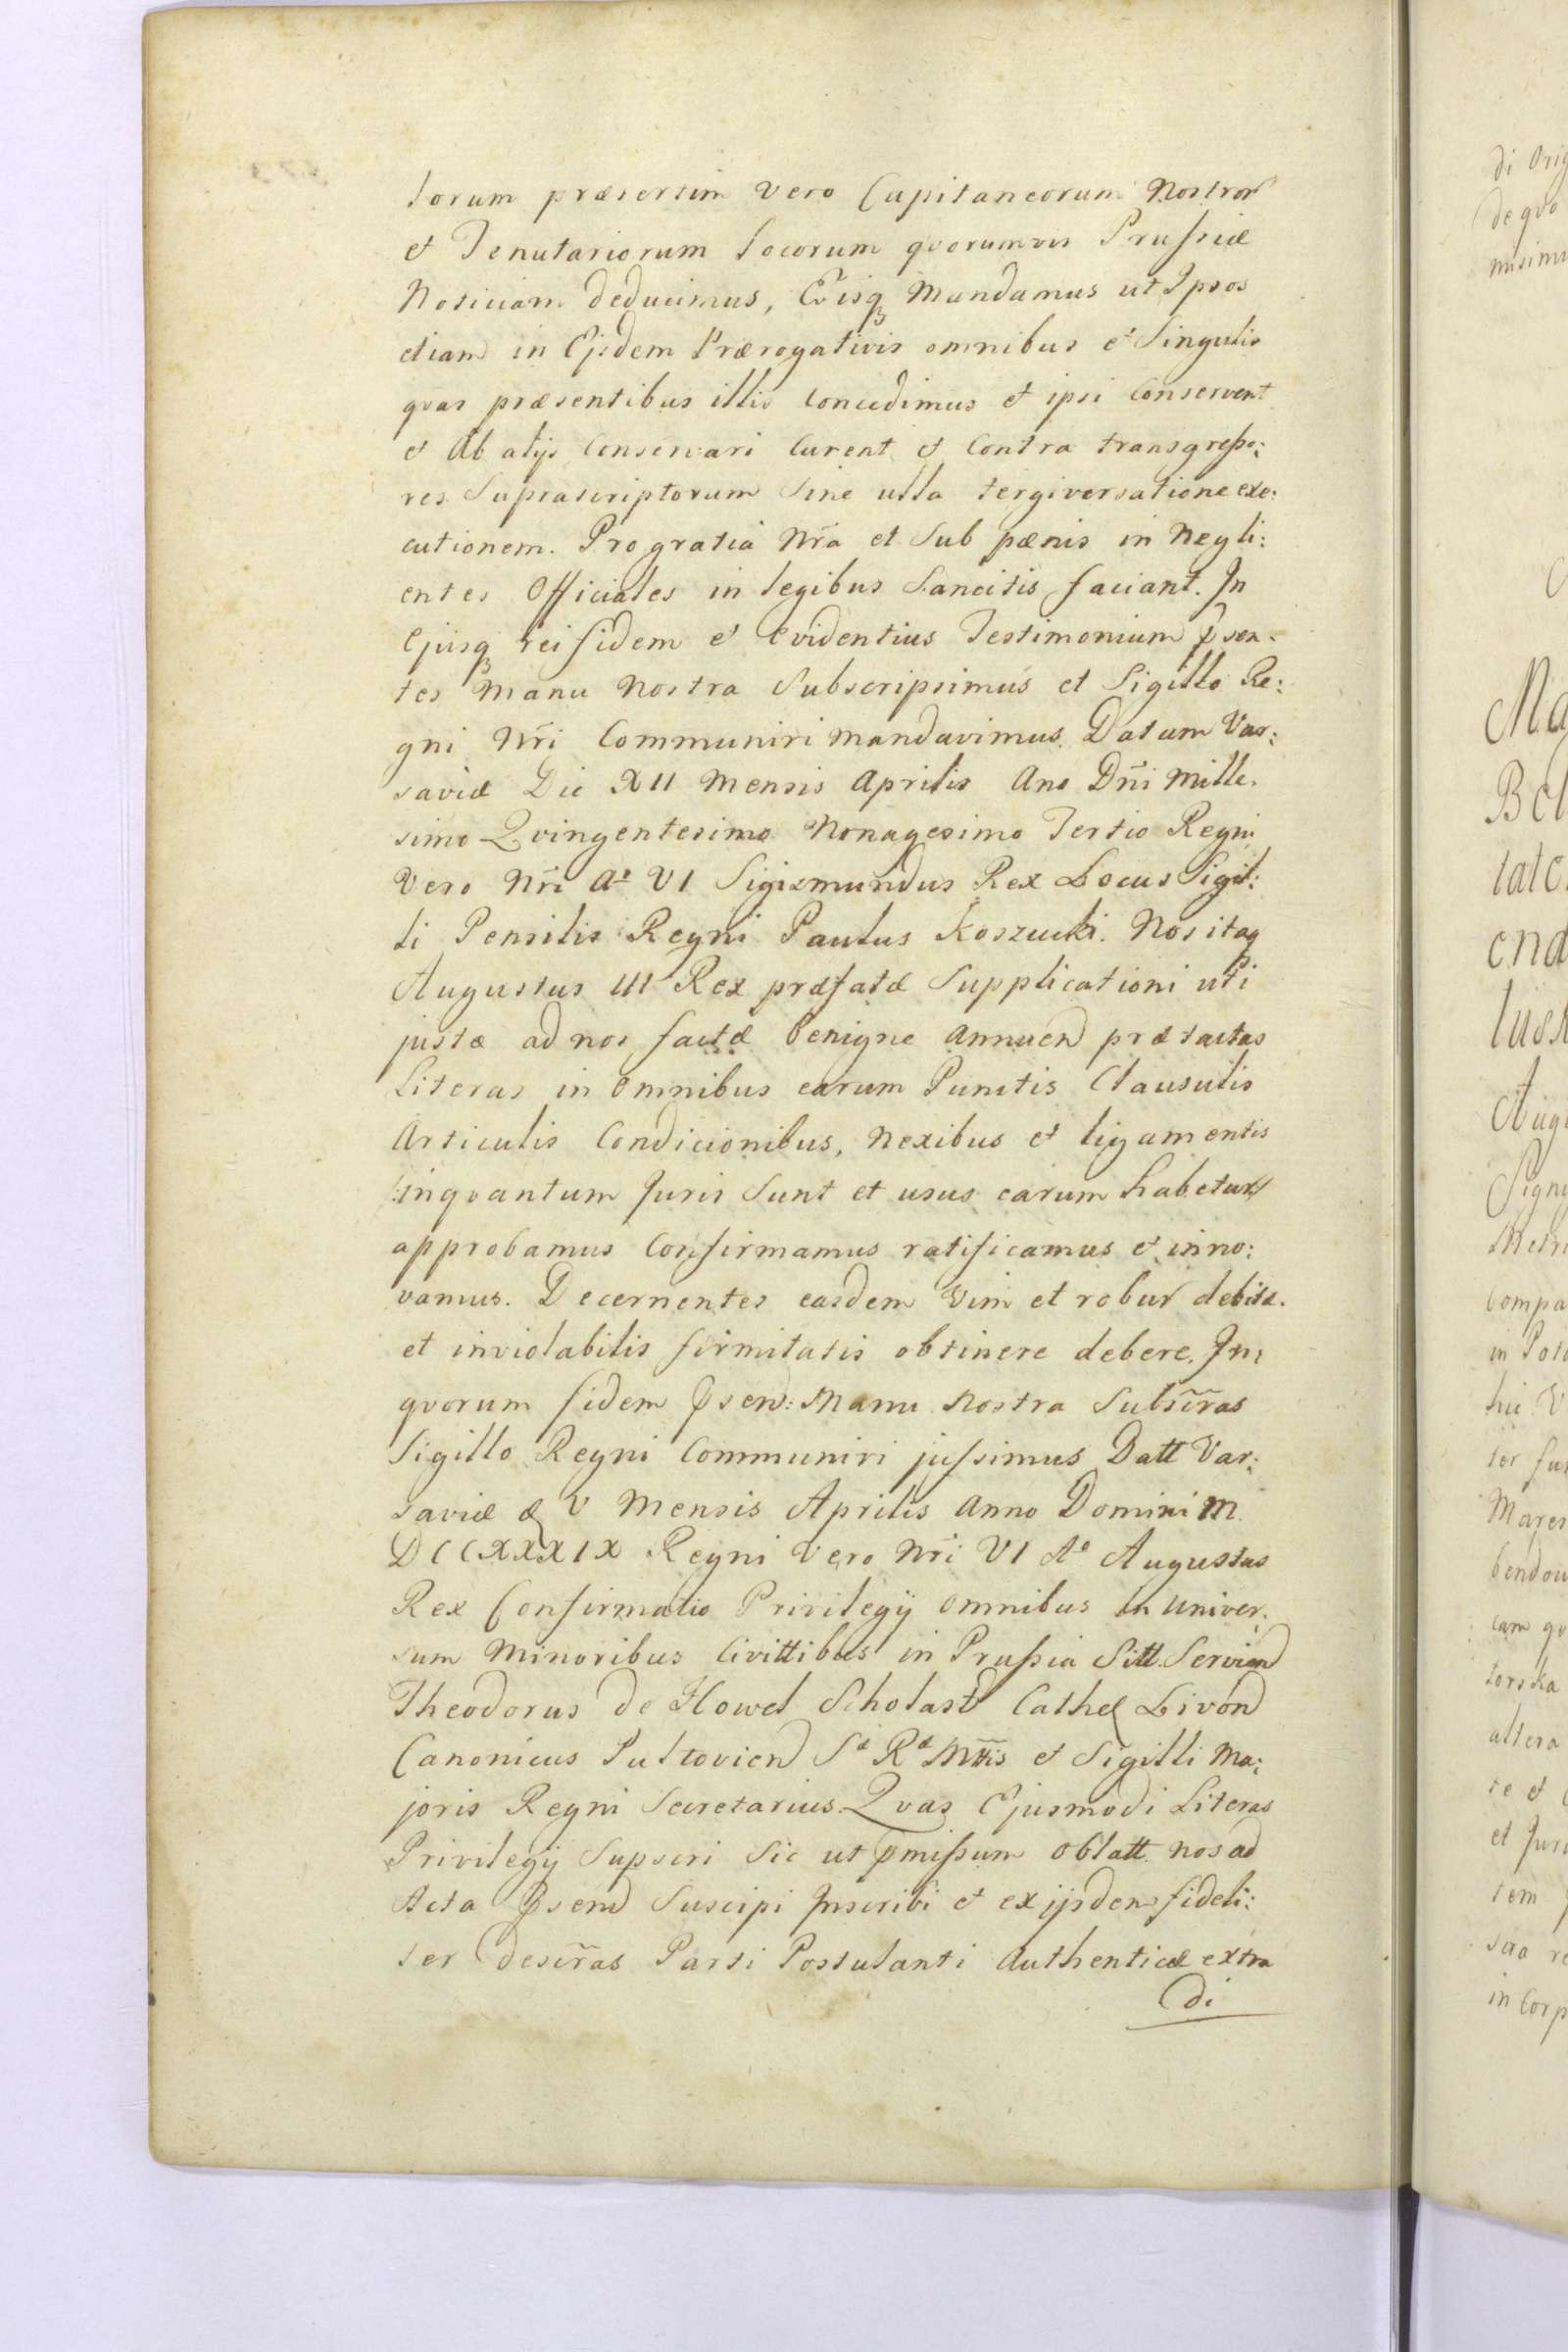 torum præsertim vero Capitaneorum Nostror
et Tenutariorum locorum qvorumvis Prussiæ
Noticiam deducimus, Eisq mandamus ut Ipsos
etiam in Ejsdem Prærogativis omnibus et Singulis
qvas præsentibus illis concedimus et ipsi conservent
et Ab alijs conservari curent et Contra transgresso:
res Suprascriptorum Sine ulla tergiversatione exe:
cutionem. Pro gratia Nrã et Sub pænis in Negli:
entes Officiales in legibus Sancitis faciant. In
Ejusq rei fidem et evidentius Testimonium psen-
tes manu nostra Subscripsimus et Sigillo Re:
gni Nrĩ Communiri mandavimus. Datum Var:
saviæ Die XII mensis Aprilis Ano Dñi Mille.
simo Qvingentesimo Nonagesimo Tertio Regni
Vero Nrĩ Aº VI Sigismundus Rex Locus Sigil:
li Pensilis Regni Paulus Koszucki. Nos itaq
Augustus III Rex præfatæ Supplicationi uti
justæ ad nos factæ benigne Annuend prætactas
Literas in omnibus earum Punctis Clausulis
Articulis Condicionibus, nexibus et ligamentis
/:inqvantum Juris Sunt et usus earum habetur/
approbamus Confirmamus ratificamus et inno:
vamus. Decernentes easdem Vim et robur debitæ.
et inviolabilis firmitatis obtinere debere. In:
qvorum fidem psend: Manu Nostra Subscr̃as
Sigillo Regni Communiri jussimus Datt Var:
saviæ d V Mensis Aprilis Anno Domini M.
DCCXXXIX Regni Vero Nrĩ VI Aº Augustus
Rex Confirmatio Privilegij omnibus in univer.
sum Minoribus Civittibus in Prussia Sitt. Serviend
Theodorus de Howel Scholast Cathed Livond
Canonicus Pultoviend S R Mttis et Sigilli Ma:
joris Regni Secretarius. Qvas Ejusmodi Literas
Privilegij Supscri Sic ut pmissum oblatt nos ad
Acta psend Suscipi Inscribi et ex ijsdem fideli:
ter descr̃as Parti Postulanti Authenticæ extra
di
di Orig
de qvo
misimu
Ma
Bel
tate
end
Augu
Signi
Metri
Compa
in Polo
hic V
ter fu
Mares
bendow
cam qv
torska
altera
te et
et Juri
tem
sua re
in Corp